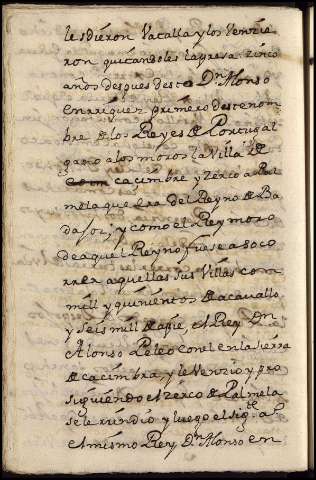 les dieron Vatalla y los Venzie
ron quitandoles la presa. zinco
años despues desto Dn Alonso
enrriquez primero deste nom
bre de los Reyes de Portugal
gano a los moros la Villa de
cacimbre y zerco a Pal
mela que era del Reyno de Ba
dajoz, y como el Rey moro
de aquel Reyno fuese a soco
rrer aquellas sus Villas con
mill y quinientos de acauallo
y seis mill de apie, el Rey Dn
Alonso Peleo con el en la sierra
de cacimbra, y le Venzio y pro
siguiendo el zerco de Palmela
se le rindio y luego el sigte. año
el mismo Rey Dn Alonso en